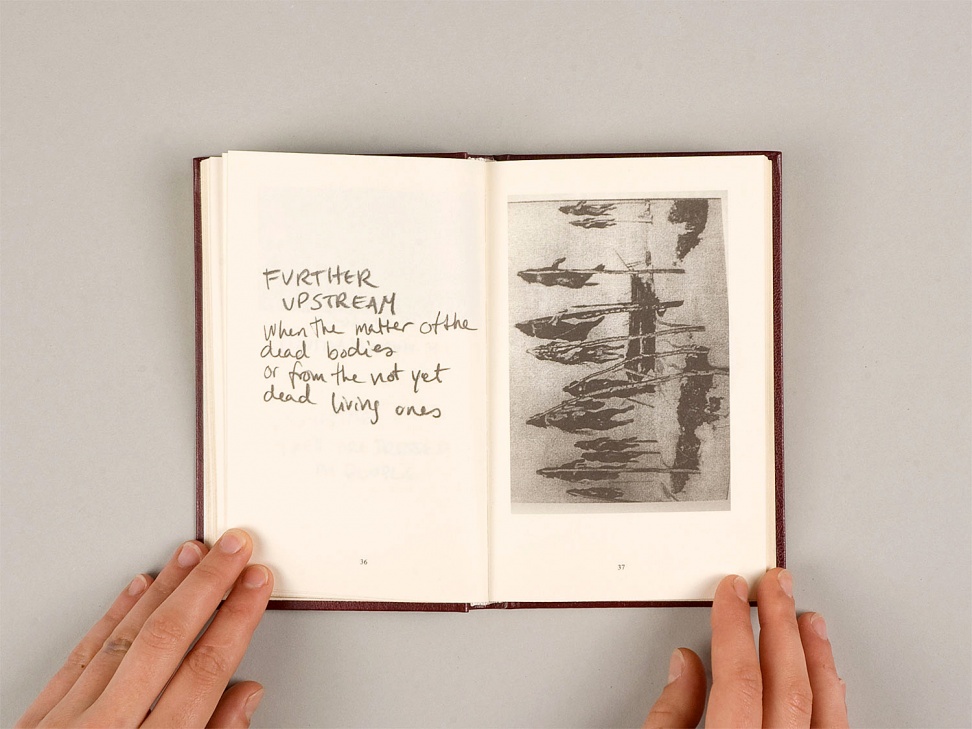 FURTHER
UPSTREAM
When the matter of the
dead bodies
or from the not yet
dead living ones
36
37